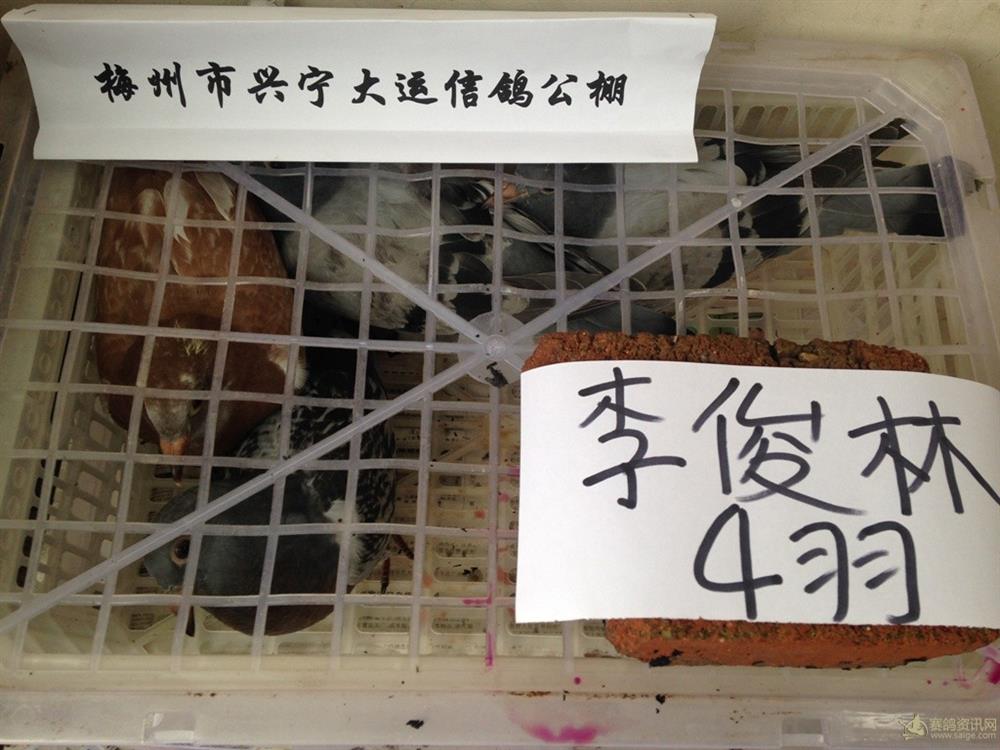 梅州市兴宁大运信鸽公棚
李俊林
4羽
赛鸽资讯网
www.saige.com